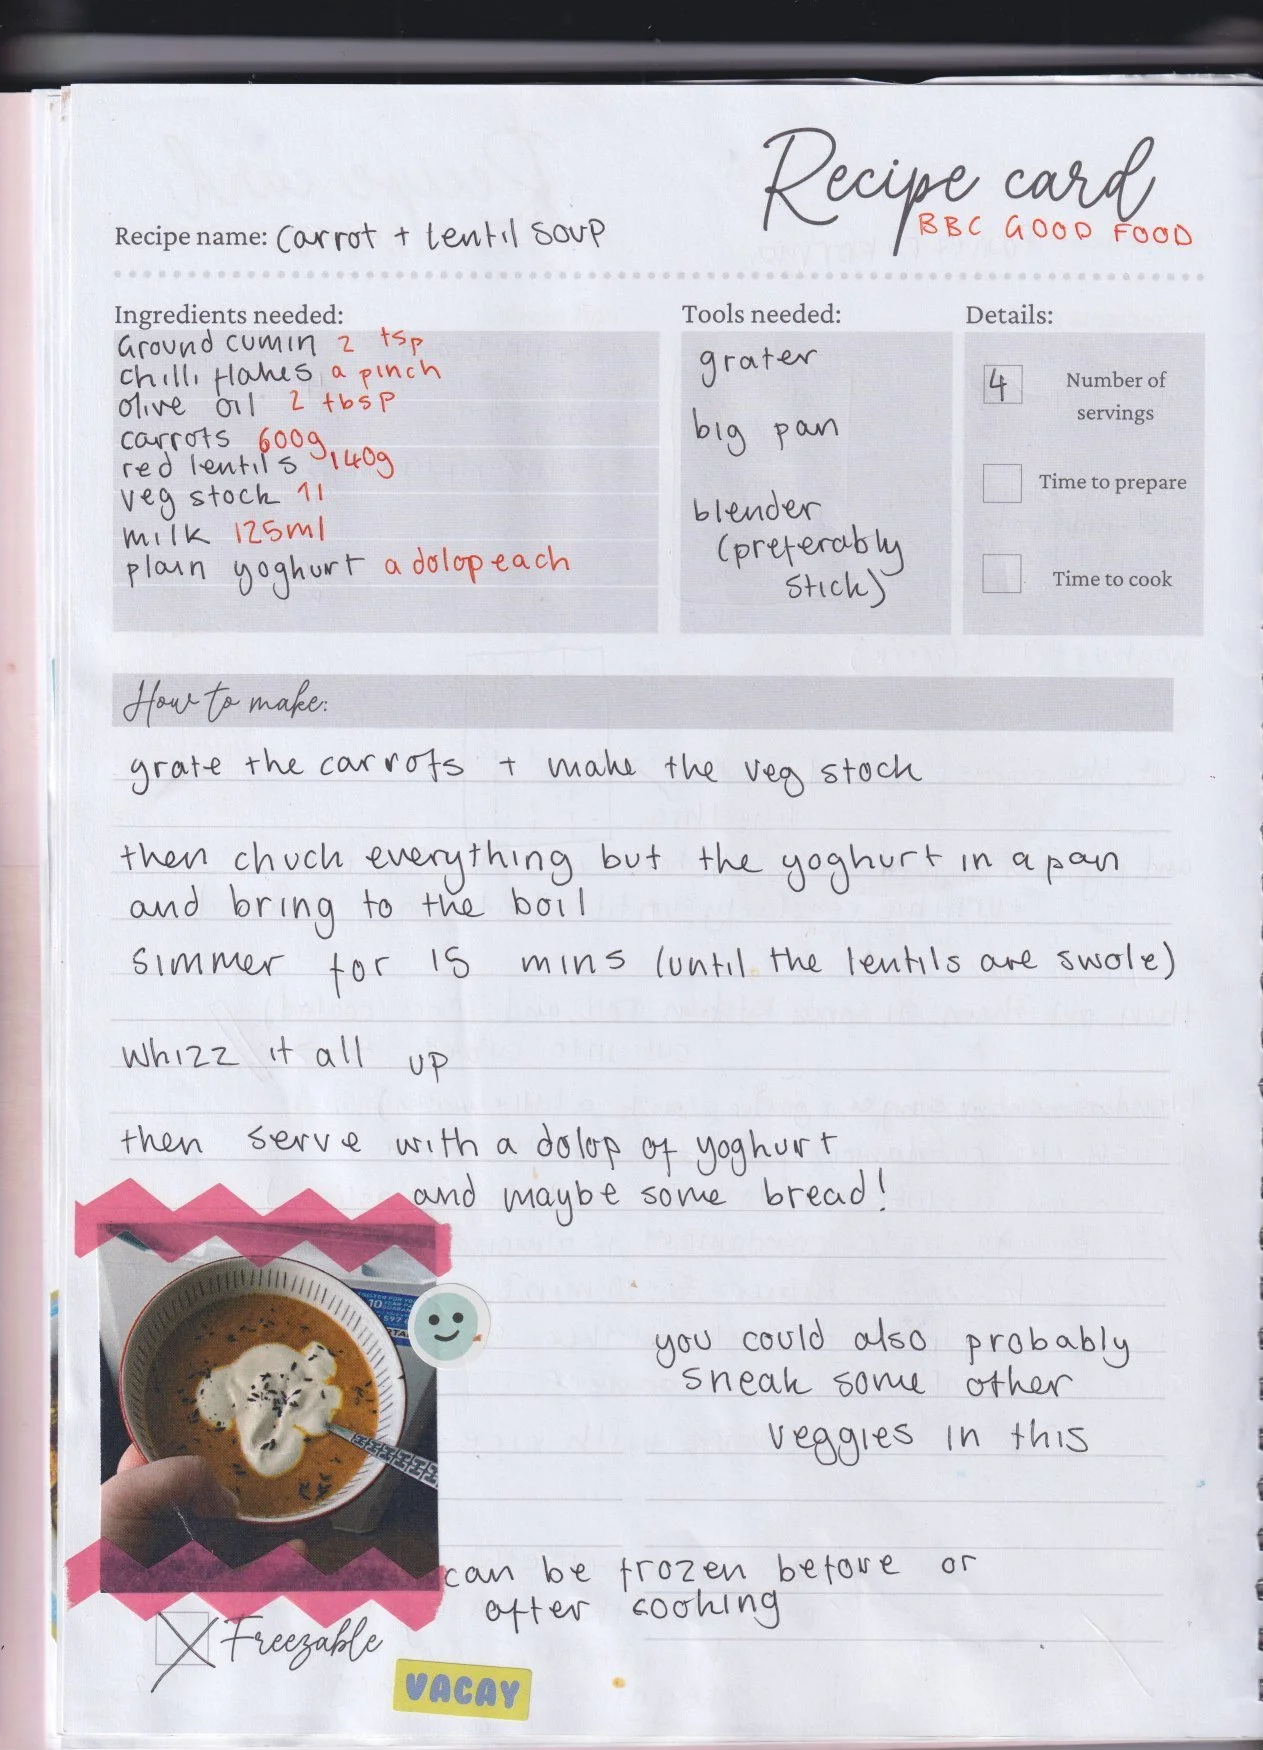 Recipe card
BBC GOOD FOOD
Recipe name: carrot + lentil soup
Ingredients needed:
Ground cumin 2 tsp
chilli flakes a pinch
olive oil 2 tbsp
carrots 600g
red lentils 140g
veg stock 1l
milk 125ml
plain yoghurt a dolop each
Tools needed:
grater
big pan
blender
(preferably
stick)
Details:
4 Number of
servings
Time to prepare
Time to cook
How to make:
grate the carrots + make the veg stock
then chuck everything but the yoghurt in a pan
and bring to the boil
simmer for 15 mins (until the lentils are swole)
whizz it all up
then serve with a dolop of yoghurt
and maybe some bread!
you could also probably
sneak some other
veggies in this
can be frozen before or
after cooking
Freezable
VACAY